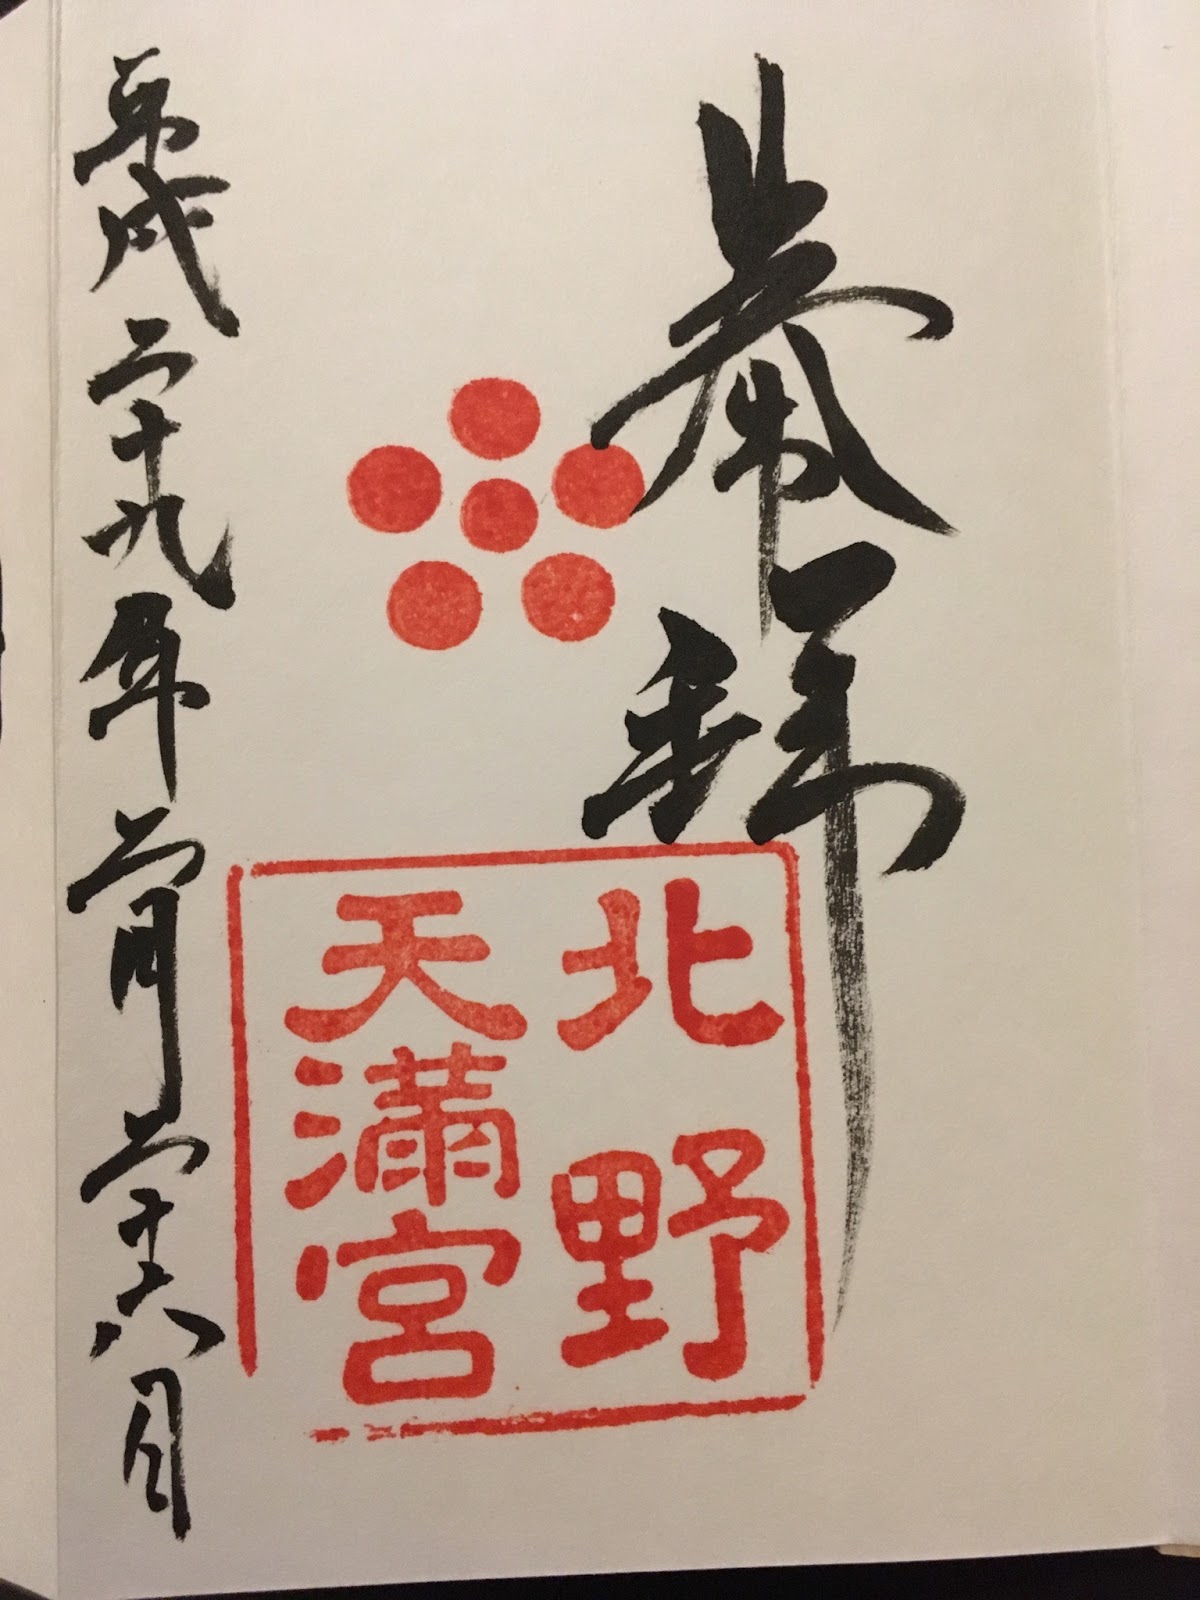 奉拜
北野
天滿宮
平成二十九年二月二十六日